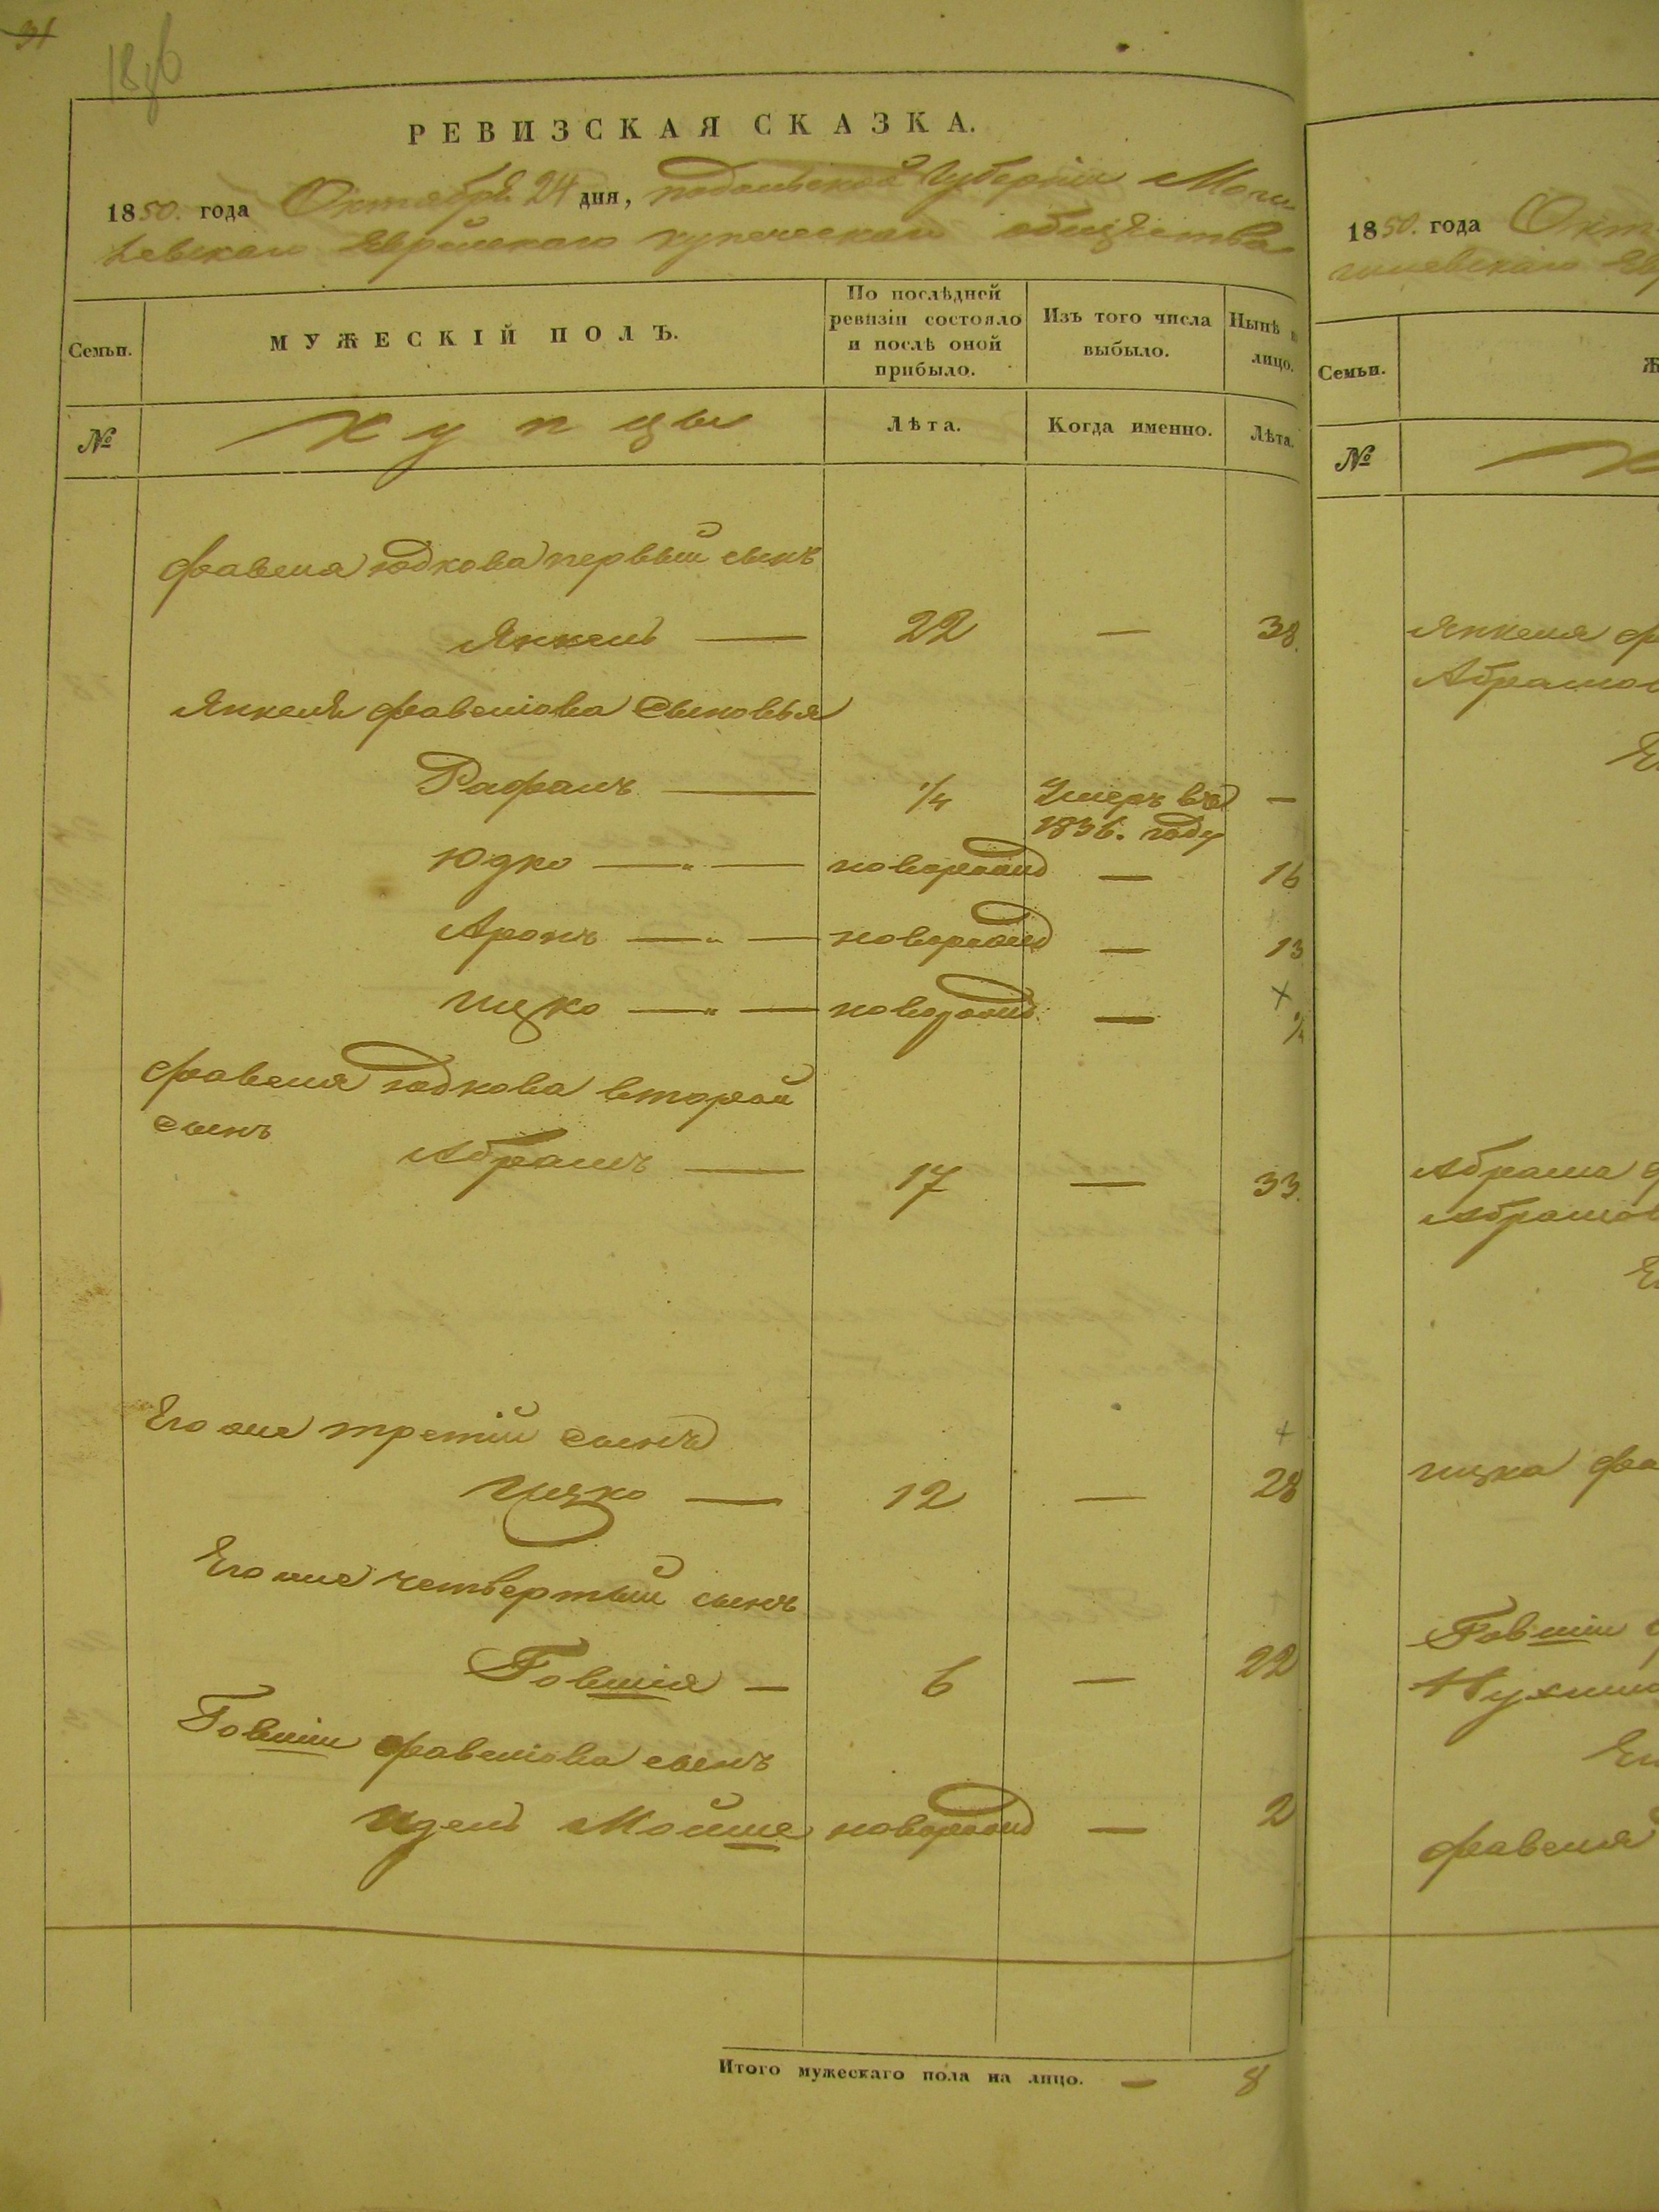 31
РЕВИЗСКАЯ СКАЗКА.
1850. года Октября 24 дня, подольской Губерніи Моги
левскаго Еврейскаго купеческаго общества
Семьи.
МУЖЕСКІЙ ПОЛЪ.
По послѣдней ревизіи состояло и послѣ оной прибыло.
Изъ того числа выбыло.
Нынѣ
лицо.
№
Купцы
Лѣта.
Когда именно.
Лѣта.
Фавеля Юдкова первый сынъ
Янкель — 22 — 38.
Янкеля Фавелiова Сыновья
Рафалъ — 1/4 Умеръ въ 1836. году —
Юдко — " — новорожд — 16
Аронъ — " — новорожд — 13
Ицко — " — новорожд —
Фавеля Юдкова второй
сынъ
Абрамъ — 17 — 33.
Его же третій сынъ
Ицко — 12 — 28
Его же четвертый сынъ
Говшія — 6 — 22
Говшіи Фавелiова сынъ
Идель Мойше новорожд — 2
Итого мужескаго пола на лицо. — 8
1850. года Окт
Семьи.
Ж
№
Янкеля Фа
Абрамов
Абрама
Абрамов
Ицка Фа
Говшіи
Фавеля